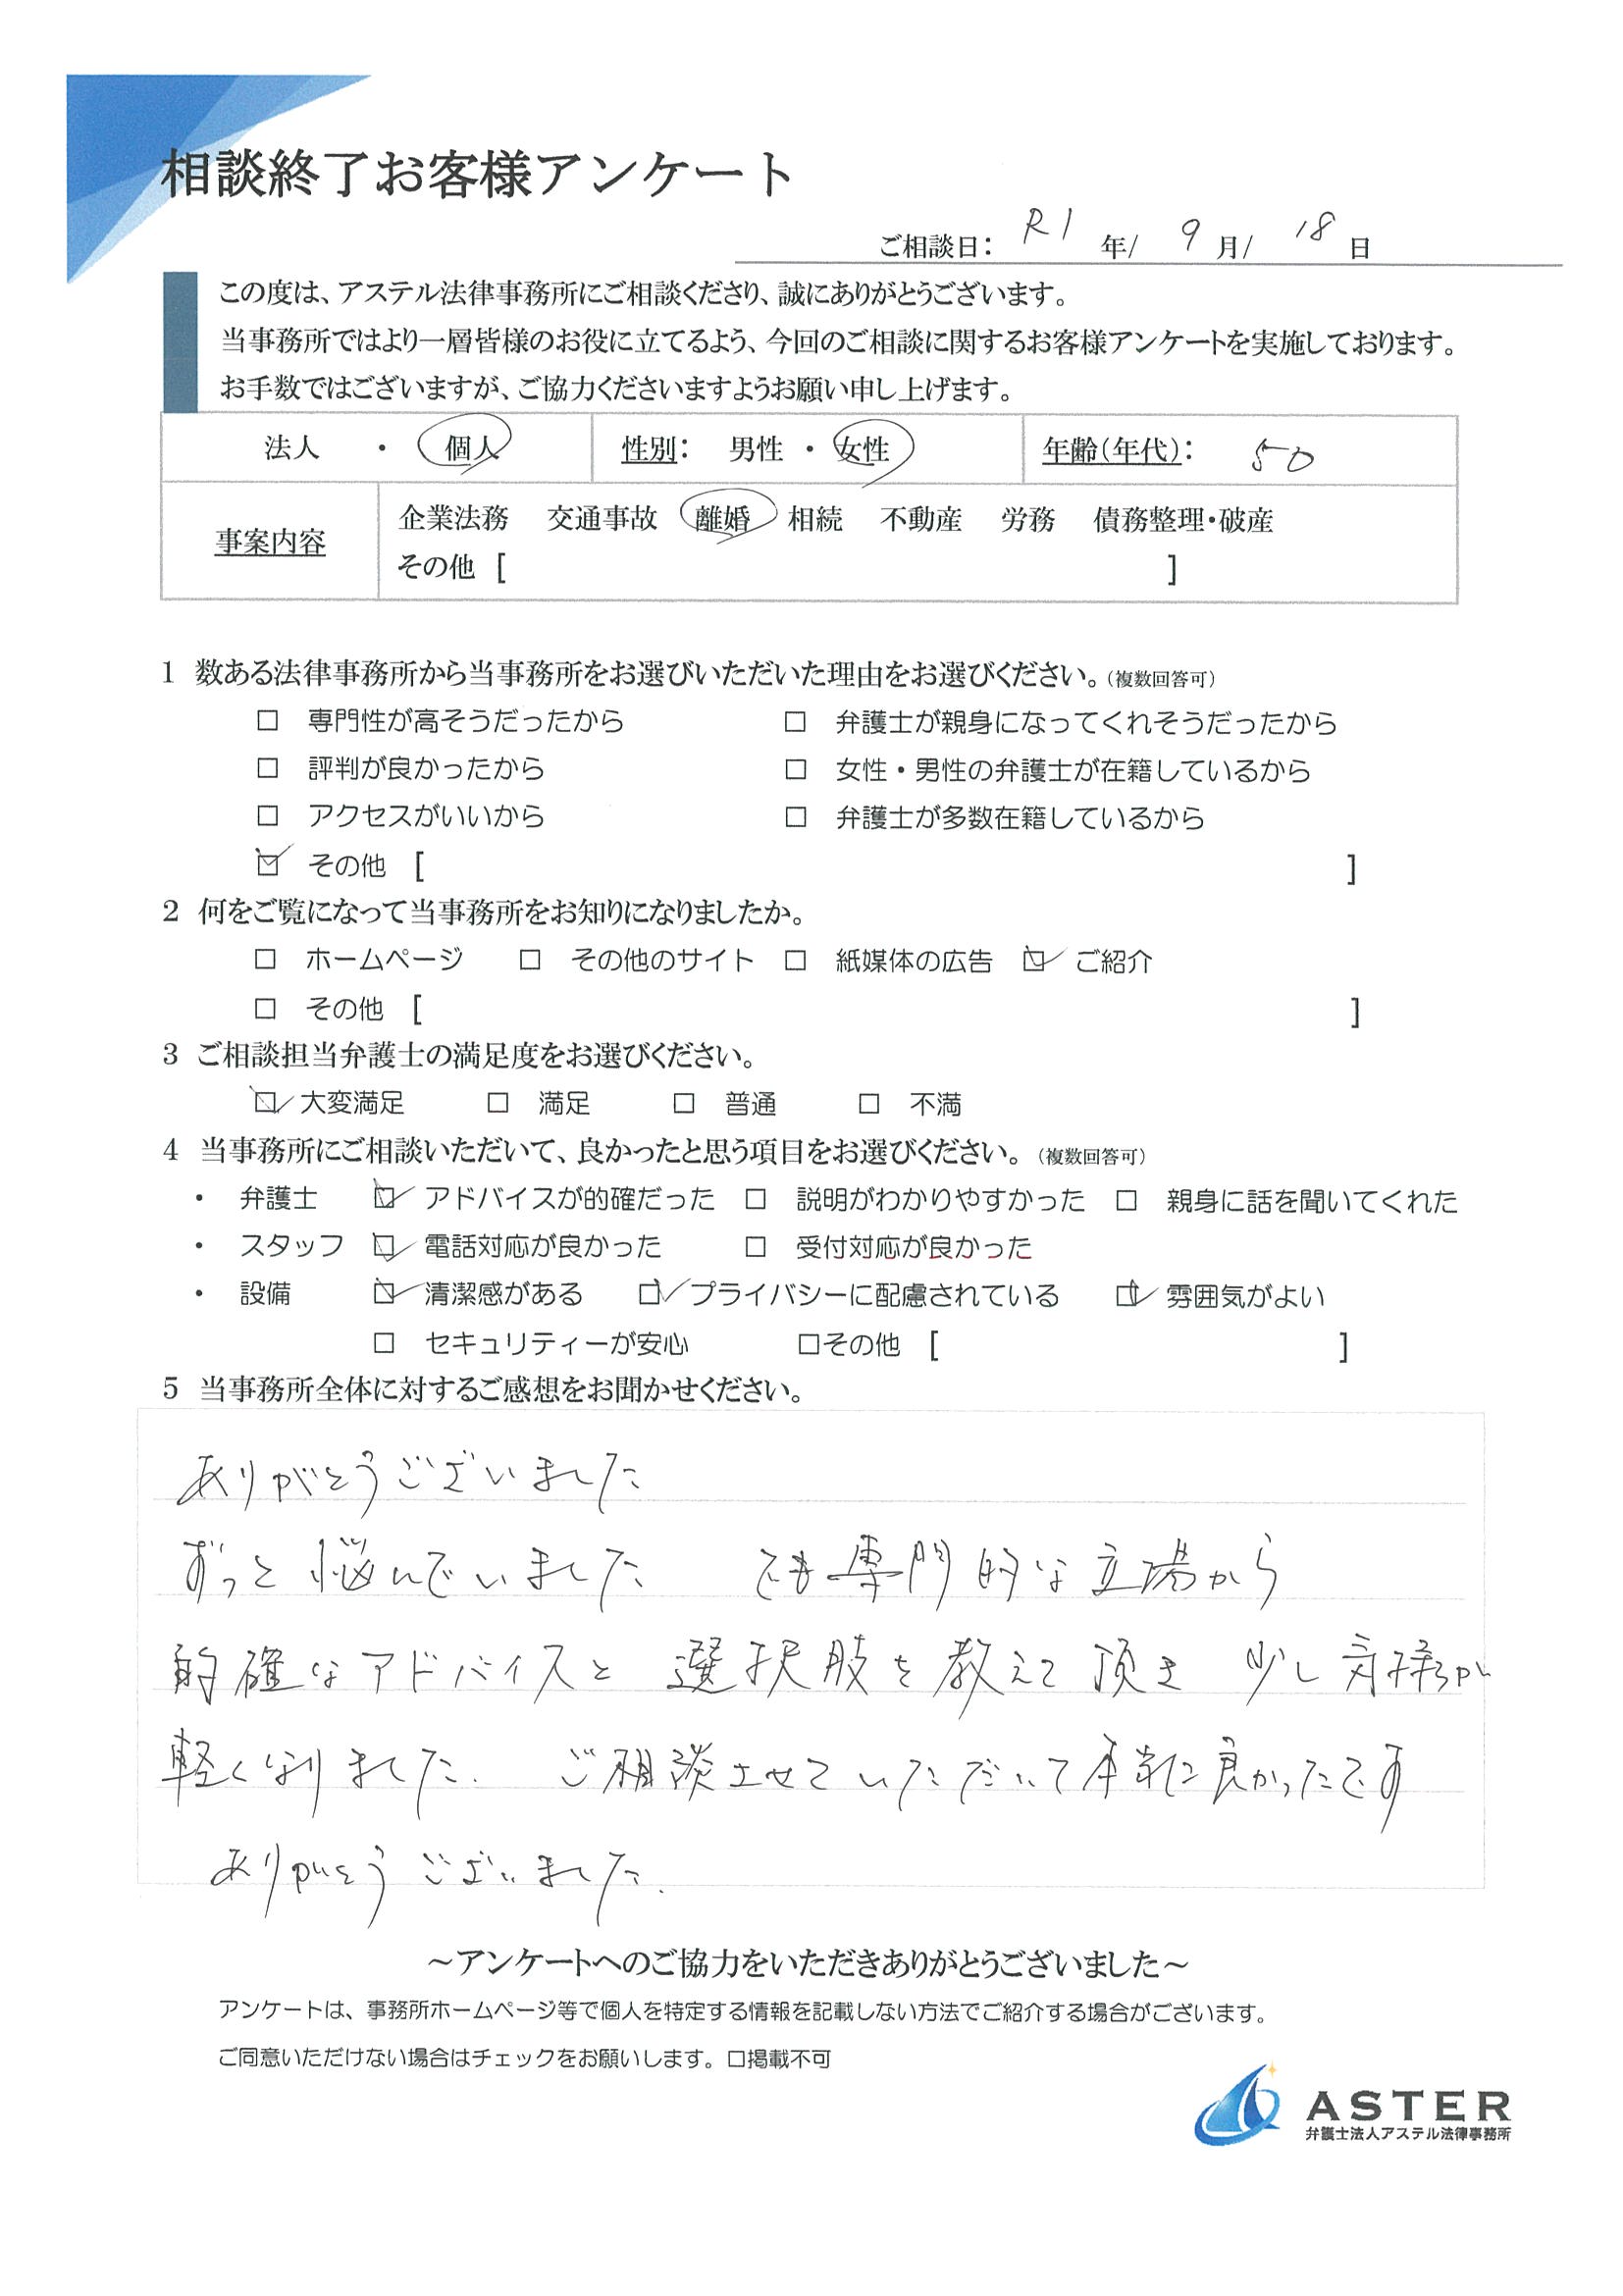 相談終了お客様アンケート
ご相談日： R1 年/ 9 月/ 18 日
この度は、アステル法律事務所にご相談くださり、誠にありがとうございます。
当事務所ではより一層皆様のお役に立てるよう、今回のご相談に関するお客様アンケートを実施しております。
お手数ではございますが、ご協力くださいますようお願い申し上げます。
法人 ・ 個人 性別： 男性 ・ 女性 年齢（年代）： 50
事案内容 企業法務 交通事故 離婚 相続 不動産 労務 債務整理・破産
その他 [ ]
1 数ある法律事務所から当事務所をお選びいただいた理由をお選びください。（複数回答可）
□ 専門性が高そうだったから □ 弁護士が親身になってくれそうだったから
□ 評判が良かったから □ 女性・男性の弁護士が在籍しているから
□ アクセスがいいから □ 弁護士が多数在籍しているから
☑ その他 [ ]
2 何をご覧になって当事務所をお知りになりましたか。
□ ホームページ □ その他のサイト □ 紙媒体の広告 ☑ ご紹介
□ その他 [ ]
3 ご相談担当弁護士の満足度をお選びください。
☑ 大変満足 □ 満足 □ 普通 □ 不満
4 当事務所にご相談いただいて、良かったと思う項目をお選びください。（複数回答可）
・ 弁護士 ☑ アドバイスが的確だった □ 説明がわかりやすかった □ 親身に話を聞いてくれた
・ スタッフ ☑ 電話対応が良かった □ 受付対応が良かった
・ 設備 ☑ 清潔感がある ☑ プライバシーに配慮されている ☑ 雰囲気がよい
□ セキュリティーが安心 □その他 [ ]
5 当事務所全体に対するご感想をお聞かせください。
ありがとうございました
ずっと悩んでいました でも専門的な立場から
的確なアドバイスと選択肢を教えて頂き 少し気持ちが
軽くなりました. ご相談させていただいて本当に良かったです
ありがとうございました.
～アンケートへのご協力をいただきありがとうございました～
アンケートは、事務所ホームページ等で個人を特定する情報を記載しない方法でご紹介する場合がございます。
ご同意いただけない場合はチェックをお願いします。□掲載不可
ASTER
弁護士法人アステル法律事務所